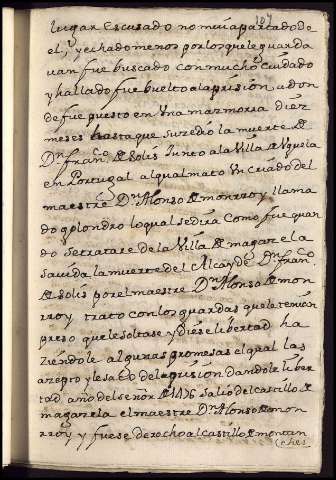 107
lugar escusado no mui apartado de
el, y echado menos por los que le guarda
van fue buscado con mucho cuidado
y hallado fue buelto a la prision adon
de fue puesto en una mazmorra diez
meses hasta que suzedio la muerte de
Dn. franco. de Solis Junto a la Villa de Uguela
en Portugal al qual mato un criado del
maestre Dn. Alonso de monrroy llama
do golondro lo qual se dira como fue quan
do se tratare de la Villa de magazela
savida la muerte del Alcayde Dn. franco.
de Solis por el maestre Dn. Alonso de mon
rroy trato con los guardas que le tenian
preso que le soltase y diese libertad ha
ziendole algunas promesas el qual las
azepto y le saco de la prision dandole liber
tad año del señor de 1476 salio del castillo de
magazela el maestre Dn. Alonso de mon
rroy y fuese derecho al castillo de montan
ches